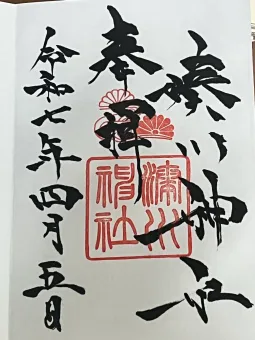 湊川神社
奉拝
湊川神社
令和七年四月五日